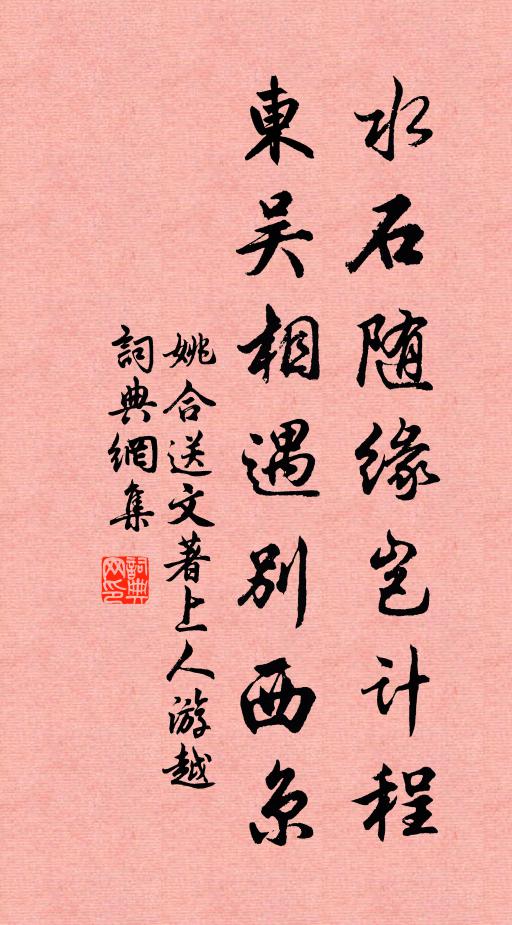 水石随缘岂计程
東吴相遇别西京
姚合送文著上人游越
詞典網集
詞典网印